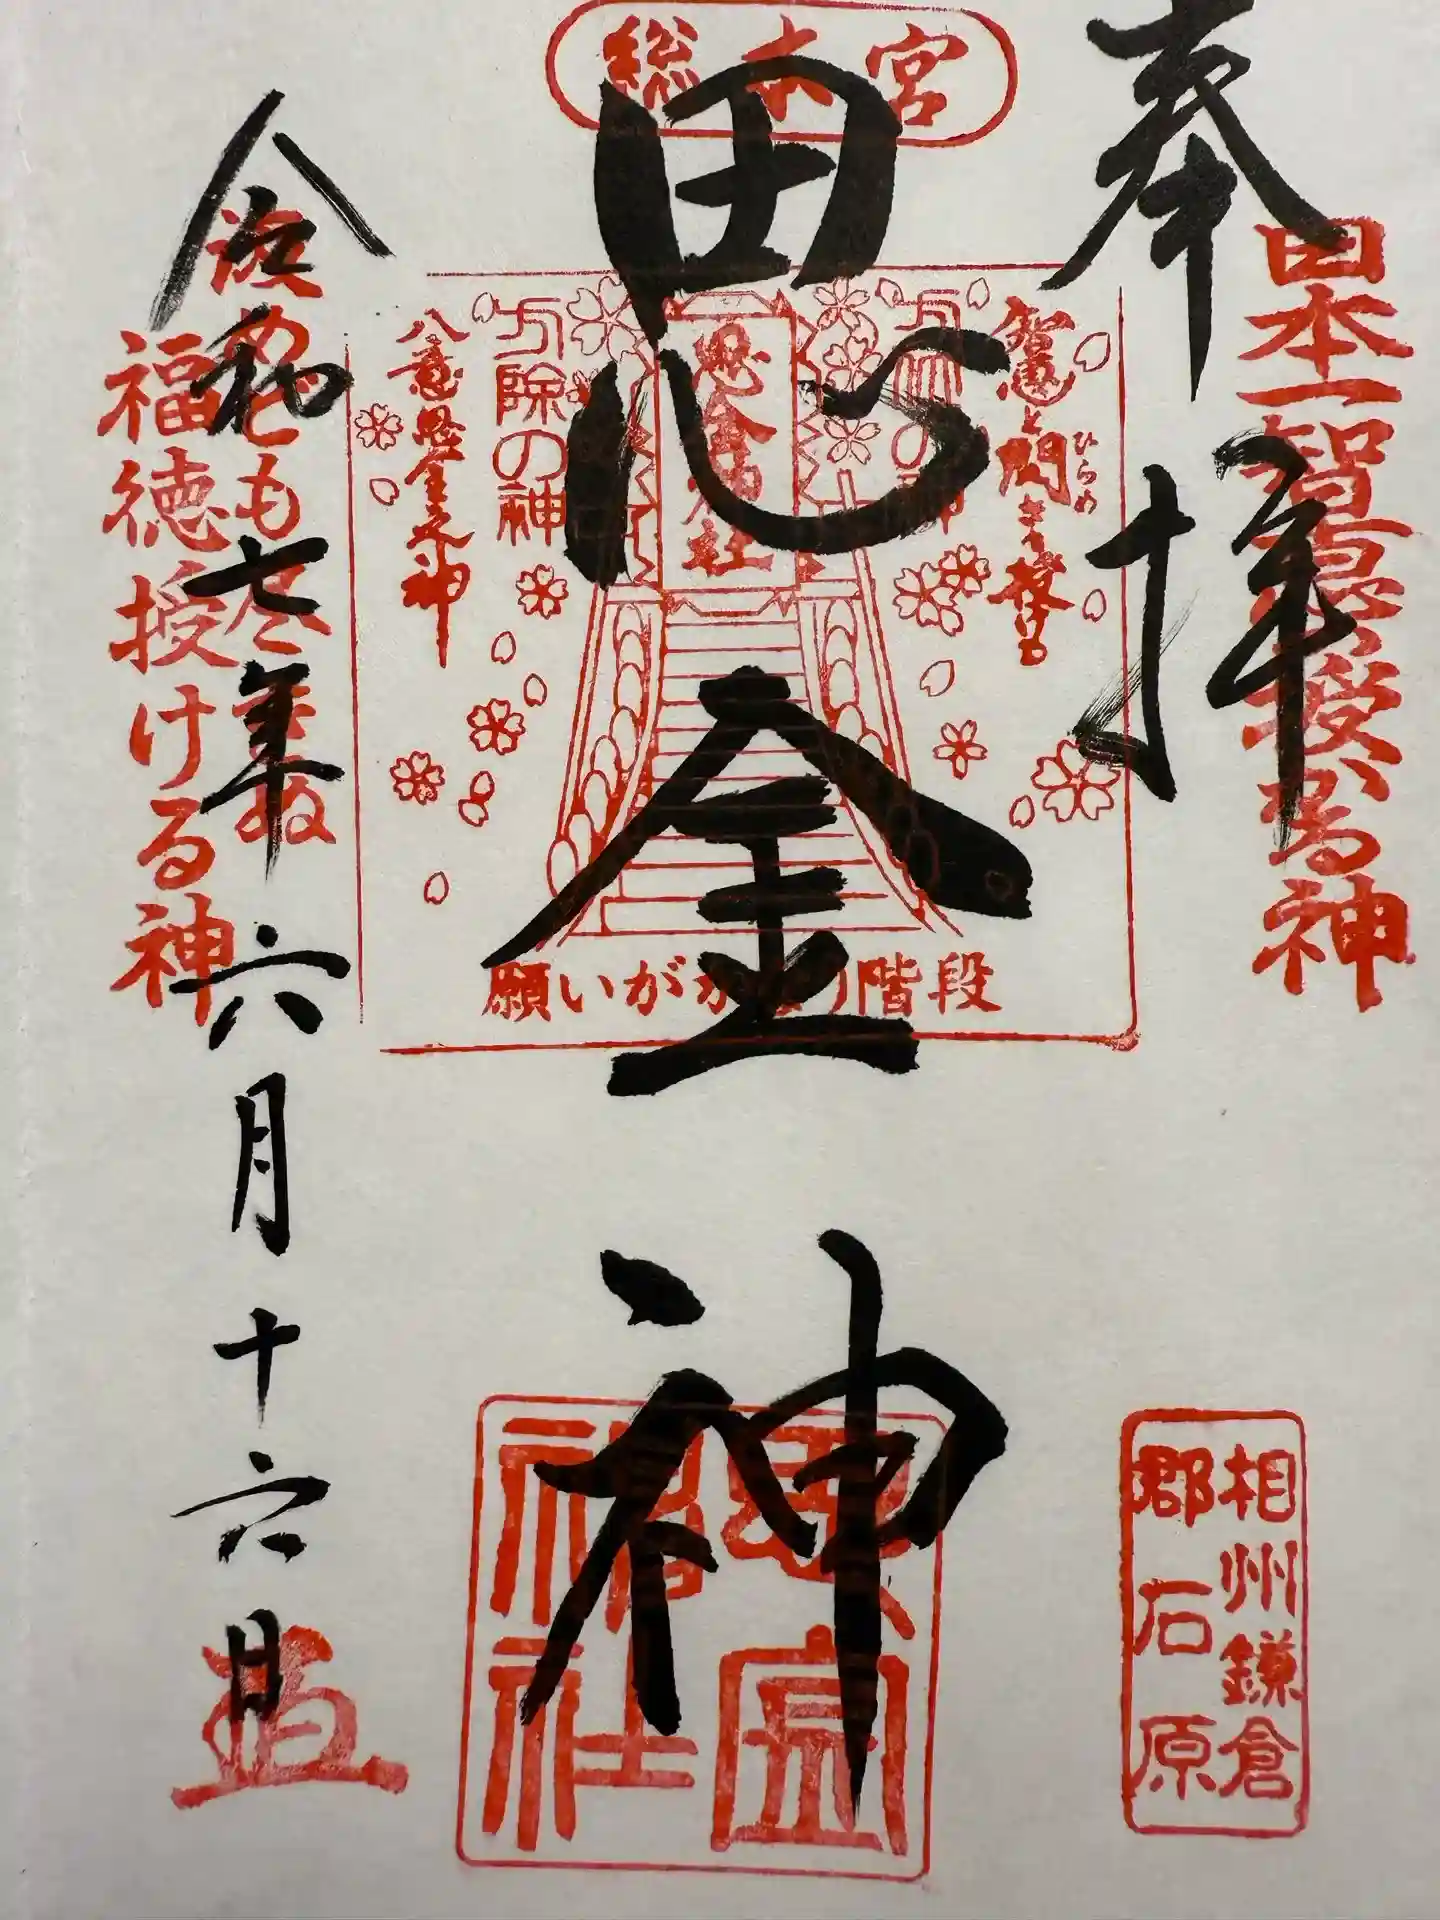 奉拝
日本一智恵授かる神
総本宮
思金神
智恵と閃きを授ける
ひらめ
方除の神
思金神社
方除の神
八意思金之神
願いがかなう階段
汲めども尽きぬ
福徳授ける神
令和七年六月十六日
相州鎌倉
郡石原
思金
神社